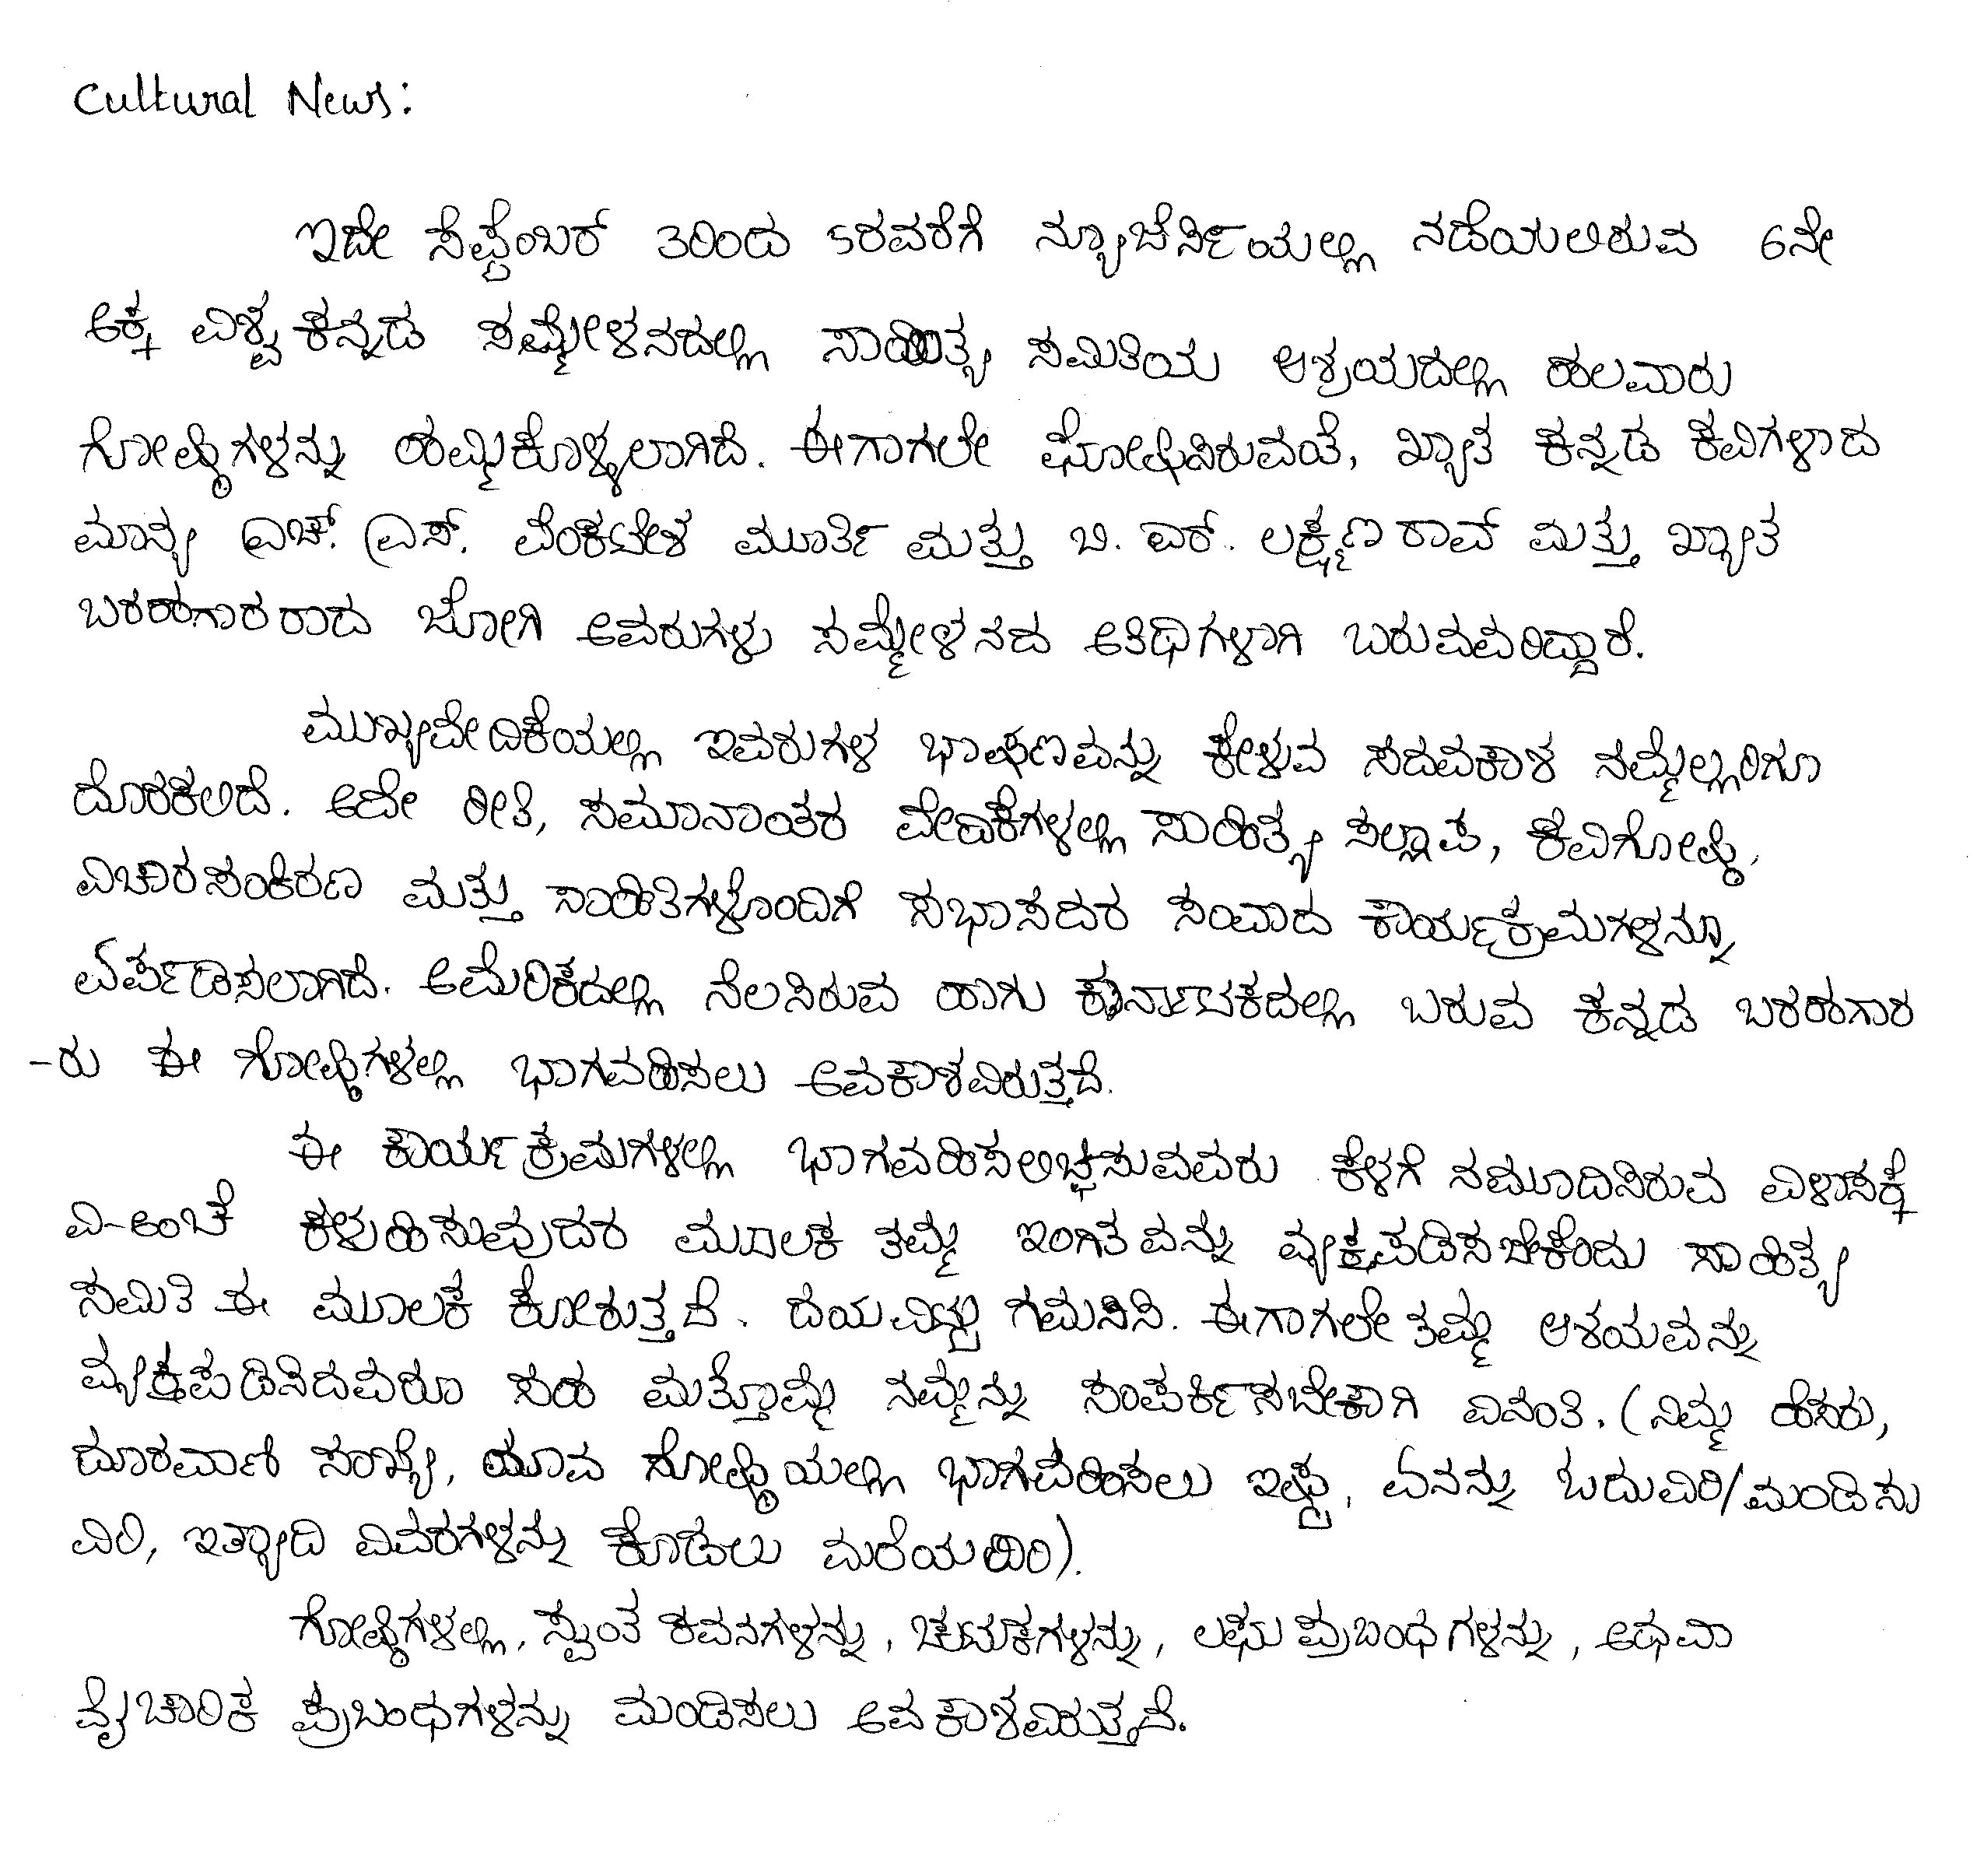 Cultural News:
ಇದೇ ಸೆಪ್ಟೆಂಬರ್ 3ರಿಂದ 5ರವರೆಗೆ ನ್ಯೂಜೆರ್ಸಿಯಲ್ಲಿ ನಡೆಯಲಿರುವ 6ನೇ
ಅಕ್ಕ ವಿಶ್ವ ಕನ್ನಡ ಸಮ್ಮೇಳನದಲ್ಲಿ ಸಾಹಿತ್ಯ ಸಮಿತಿಯ ಆಶ್ರಯದಲ್ಲಿ ಹಲವಾರು
ಗೋಷ್ಠಿಗಳನ್ನು ಹಮ್ಮಿಕೊಳ್ಳಲಾಗಿದೆ. ಈಗಾಗಲೇ ಘೋಷಿಸಿರುವಂತೆ, ಖ್ಯಾತ ಕನ್ನಡ ಕವಿಗಳಾದ
ಮಾನ್ಯ ಎಚ್. ಎಸ್. ವೆಂಕಟೇಶ ಮೂರ್ತಿ ಮತ್ತು ಬಿ. ಆರ್. ಲಕ್ಷ್ಮಣ ರಾವ್ ಮತ್ತು ಖ್ಯಾತ
ಬರಹಗಾರರಾದ ಜೋಗಿ ಅವರುಗಳು ಸಮ್ಮೇಳನದ ಅತಿಥಿಗಳಾಗಿ ಬರುವವರಿದ್ದಾರೆ.
ಮುಖ್ಯವೇದಿಕೆಯಲ್ಲಿ ಇವರುಗಳ ಭಾಷಣವನ್ನು ಕೇಳುವ ಸದವಕಾಶ ನಮ್ಮೆಲ್ಲರಿಗೂ
ದೊರಕಲಿದೆ. ಅದೇ ರೀತಿ, ಸಮಾನಾಂತರ ವೇದಿಕೆಗಳಲ್ಲಿ ಸಾಹಿತ್ಯ ಸಲ್ಲಾಪ, ಕವಿಗೋಷ್ಠಿ,
ವಿಚಾರಸಂಕಿರಣ ಮತ್ತು ಸಾಹಿತಿಗಳೊಂದಿಗೆ ಸಭಾಸದರ ಸಂವಾದ ಕಾರ್ಯಕ್ರಮಗಳನ್ನೂ
ಏರ್ಪಡಿಸಲಾಗಿದೆ. ಅಮೆರಿಕದಲ್ಲಿ ನೆಲಸಿರುವ ಹಾಗು ಕರ್ನಾಟಕದಲ್ಲಿ ಬರುವ ಕನ್ನಡ ಬರಹಗಾರ
-ರು ಈ ಗೋಷ್ಠಿಗಳಲ್ಲಿ ಭಾಗವಹಿಸಲು ಅವಕಾಶವಿರುತ್ತದೆ.
ಈ ಕಾರ್ಯಕ್ರಮಗಳಲ್ಲಿ ಭಾಗವಹಿಸಲಿಚ್ಛಿಸುವವರು ಕೆಳಗೆ ನಮೂದಿಸಿರುವ ವಿಳಾಸಕ್ಕೆ
ವಿ-ಅಂಚೆ ಕಳುಹಿಸುವುದರ ಮೂಲಕ ತಮ್ಮ ಇಂಗಿತವನ್ನು ವ್ಯಕ್ತಪಡಿಸಬೇಕೆಂದು ಸಾಹಿತ್ಯ
ಸಮಿತಿ ಈ ಮೂಲಕ ಕೋರುತ್ತದೆ. ದಯವಿಟ್ಟು ಗಮನಿಸಿ. ಈಗಾಗಲೇ ತಮ್ಮ ಆಶಯವನ್ನು
ವ್ಯಕ್ತಪಡಿಸಿದವರೂ ಸಹ ಮತ್ತೊಮ್ಮೆ ನಮ್ಮನ್ನು ಸಂಪರ್ಕಿಸಬೇಕಾಗಿ ವಿನಂತಿ. (ನಿಮ್ಮ ಹೆಸರು,
ದೂರವಾಣಿ ಸಂಖ್ಯೆ, ಯಾವ ಗೋಷ್ಠಿಯಲ್ಲಿ ಭಾಗವಹಿಸಲು ಇಷ್ಟ, ಏನನ್ನು ಓದುವಿರಿ/ಮಂಡಿಸು
ವಿರಿ, ಇತ್ಯಾದಿ ವಿವರಗಳನ್ನು ಕೊಡಲು ಮರೆಯದಿರಿ).
ಗೋಷ್ಠಿಗಳಲ್ಲಿ, ಸ್ವಂತ ಕವನಗಳನ್ನು, ಚುಟುಕಗಳನ್ನು, ಲಘು ಪ್ರಬಂಧಗಳನ್ನು, ಅಥವಾ
ವೈಚಾರಿಕ ಪ್ರಬಂಧಗಳನ್ನು ಮಂಡಿಸಲು ಅವಕಾಶವಿರುತ್ತದೆ.